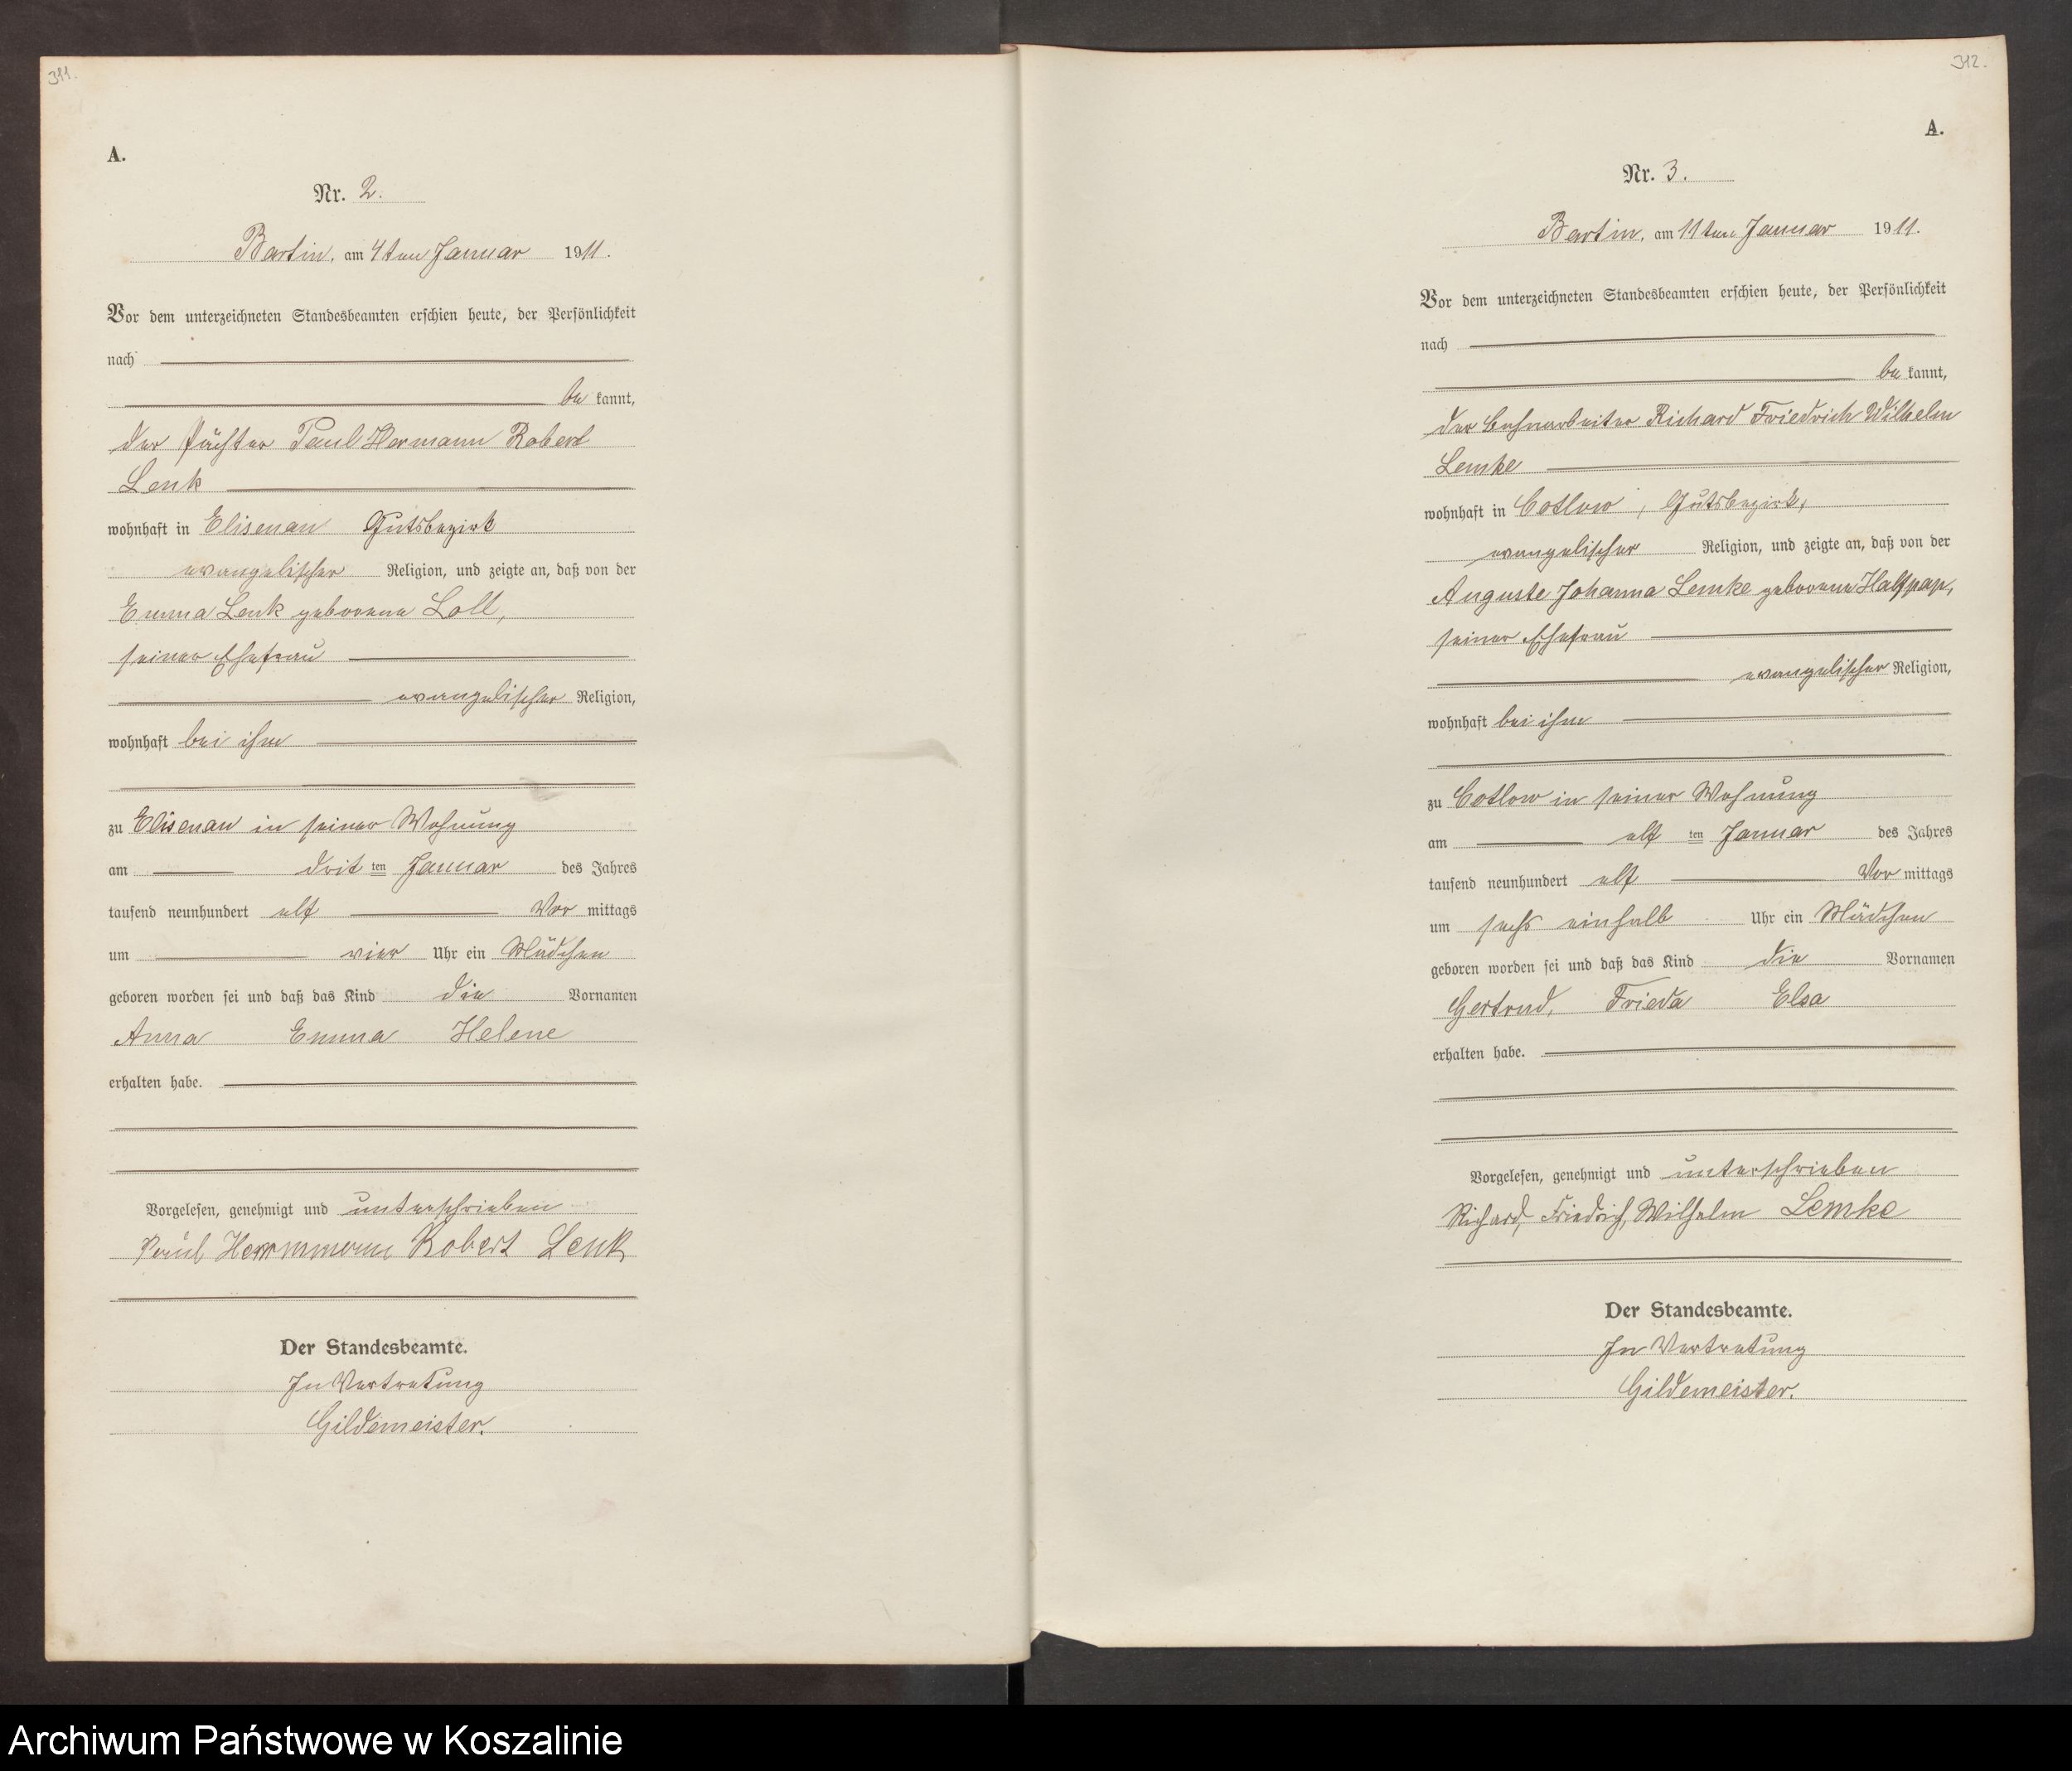 311.
A.
Nr. 2.
Bartin, am 4ten Januar 1911.
Vor dem unterzeichneten Standesbeamten erschien heute, der Persönlichkeit
nach
be kannt,
der Pächter Paul Hermann Robert
Lenk
wohnhaft in Elisenau Gutsbezirk
evangelischer Religion, und zeigte an, daß von der
Emma Lenk geborene Loll,
seiner Ehefrau
evangelischer Religion,
wohnhaft bei ihm
zu Elisenau in seiner Wohnung
am drit ten Januar des Jahres
tausend neunhundert elf Vor mittags
um vier Uhr ein Mädchen
geboren worden sei und daß das Kind die Vornamen
Anna Emma Helene
erhalten habe.
Vorgelesen, genehmigt und unterschrieben
Paul Herrmann Robert Lenk
Der Standesbeamte.
In Vertretung
Gildemeister.
312.
A.
Nr. 3.
Bartin, am 11ten Januar 1911.
Vor dem unterzeichneten Standesbeamten erschien heute, der Persönlichkeit
nach
be kannt,
der Richard Friedrich Wilhelm
Lemke
wohnhaft in Cotlow, Gutsbezirk,
evangelischer Religion, und zeigte an, daß von der
Auguste Johanna Lemke geborene Halfpap,
seiner Ehefrau
evangelischer Religion,
wohnhaft bei ihm
zu Cotlow in seiner Wohnung
am elf ten Januar des Jahres
tausend neunhundert elf Vor mittags
um sechs einhalb Uhr ein Mädchen
geboren worden sei und daß das Kind die Vornamen
Gertrud, Frieda Elsa
erhalten habe.
Vorgelesen, genehmigt und unterschrieben
Richard, Friedrich, Wilhelm Lemke
Der Standesbeamte.
In Vertretung
Gildemeister.
Archiwum Państwowe w Koszalinie